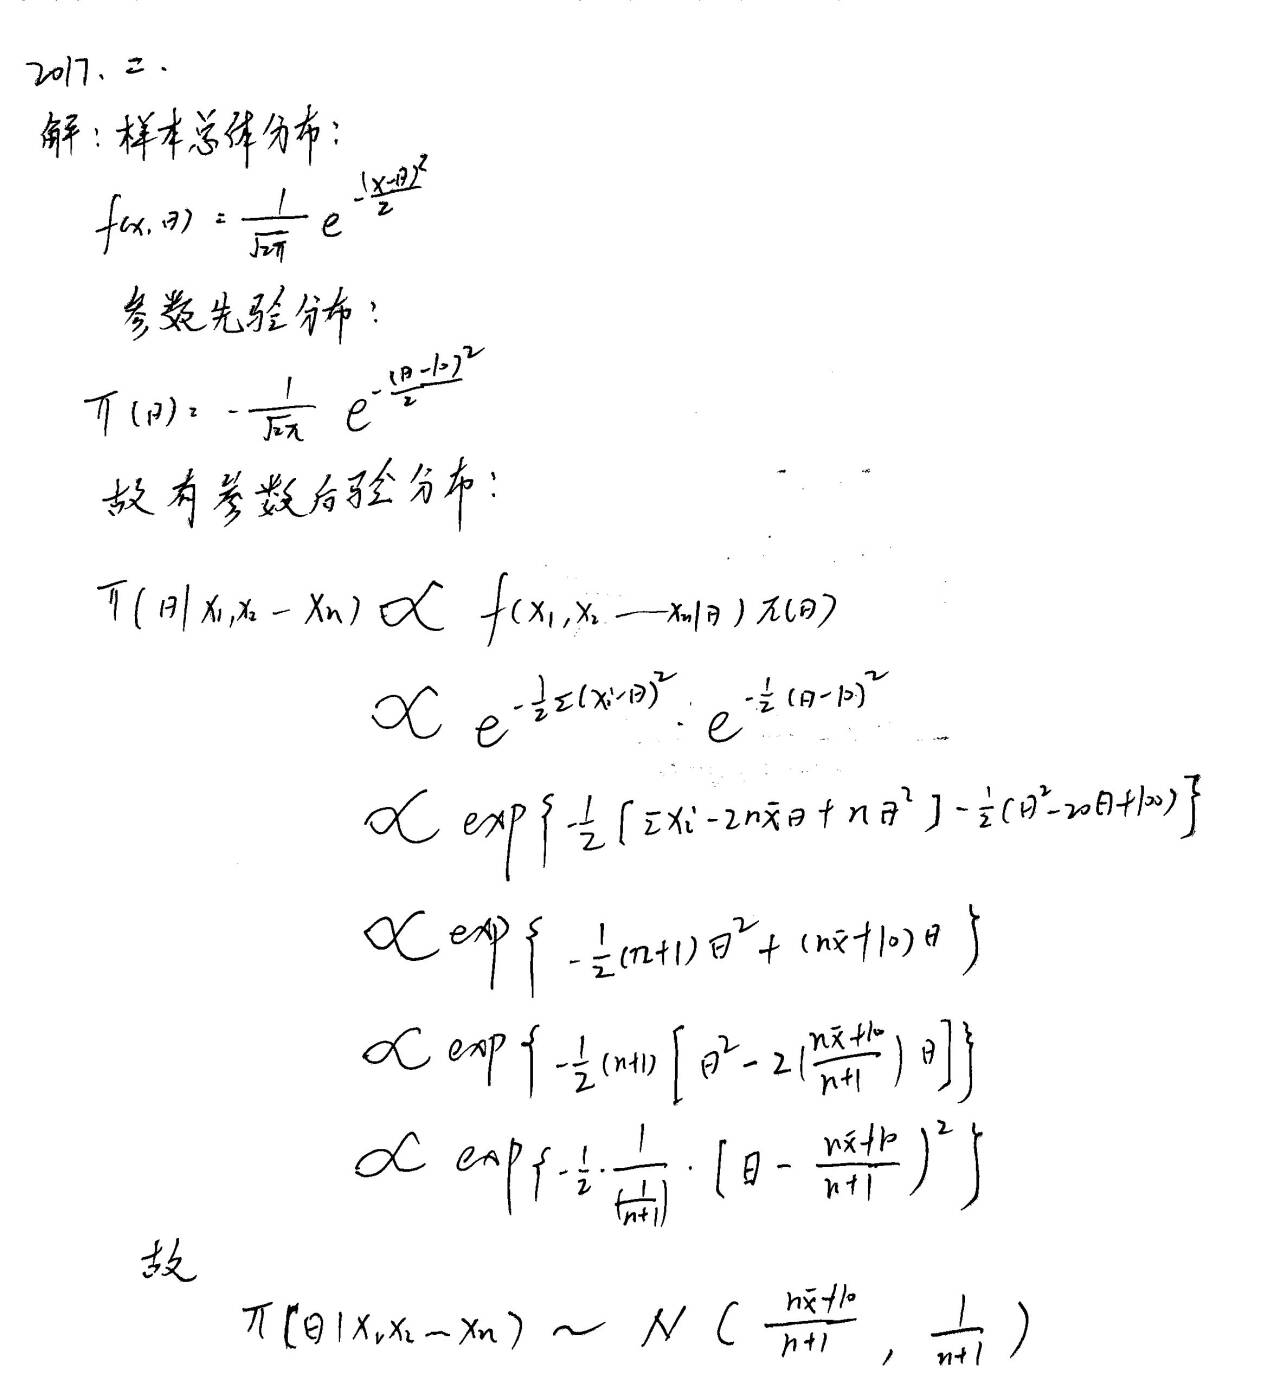 2017、二.
解：样本总体分布：
f(x,θ) = \frac{1}{\sqrt{2π}} e^{-\frac{(x-θ)^2}{2}}
参数先验分布：
π(θ) = -\frac{1}{\sqrt{2π}} e^{-\frac{(θ-10)^2}{2}}
故有参数后验分布：
π(θ|x₁,x₂-xₙ) ∝ f(x₁,x₂—xₙ|θ)π(θ)
∝ e^{-\frac{1}{2}Σ(xi-θ)^2} · e^{-\frac{1}{2}(θ-10)^2}
∝ exp{-\frac{1}{2}[Σxi-2n\bar{x}θ+nθ^2]-\frac{1}{2}(θ^2-20θ+100)}
∝ exp{-\frac{1}{2}(n+1)θ^2+(n\bar{x}+10)θ}
∝ exp{-\frac{1}{2}(n+1)[θ^2-2(\frac{n\bar{x}+10}{n+1})θ]}
∝ exp{-\frac{1}{2}·\frac{1}{(\frac{1}{n+1})}·[θ-\frac{n\bar{x}+10}{n+1})^2}
故
π[θ|x₁,x₂-xₙ) ~ N(\frac{n\bar{x}+10}{n+1}, \frac{1}{n+1})